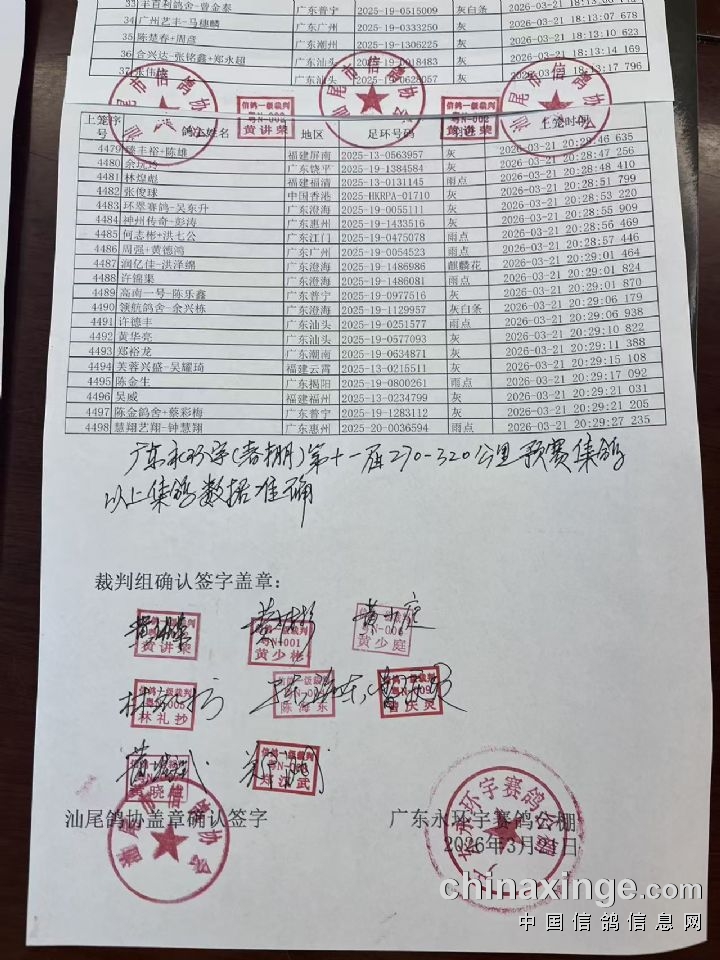 33 丰百利鸽舍-曾金泰 广东普宁 2025-19-0515009 灰白条 2026-03-21
34 广州艺丰-马穗麟 广东广州 2025-19-0333250 灰 2026-03-21 18:13:07 678
35 陈楚春+周彦 广东潮州 2025-19-1306225 灰 2026-03-21 18:13:10 623
36 合兴达-张铭鑫+郑永超 广东汕头 灰 2026-03-21 18:13:14 169
37 张伟 广东汕头 18:13:17 796
汕尾市信鸽协会
信鸽一级裁判
粤N-002
黄讲荣
汕尾市信鸽协会
信鸽一级裁判
粤N-002
黄讲荣
汕尾市信鸽协会
上笼序号 鸽主姓名 地区 足环号码 上笼时间
4479 +陈雄 福建屏南 2025-13-0563957 灰 2026-03-21 20:28:46 635
4480 广东饶平 2025-19-1384584 灰 2026-03-21 20:28:47 256
4481 林煌彪 福建福清 2025-13-0131145 雨点 2026-03-21 20:28:48 410
4482 张俊球 中国香港 2025-HKRPA-01710 灰 2026-03-21 20:28:51 799
4483 环翠赛鸽-吴东升 广东澄海 2025-19-0055111 灰 2026-03-21 20:28:53 220
4484 神州传奇+彭涛 广东惠州 2025-19-1433516 灰 2026-03-21 20:28:55 909
4485 何志彬+洪七公 广东江门 2025-19-0475078 雨点 2026-03-21 20:28:56 469
4486 周强+黄德鸿 广东广州 2025-19-0054523 雨点 2026-03-21 20:28:57 446
4487 润亿佳-洪泽绵 广东澄海 2025-19-1486986 麒麟花 2026-03-21 20:29:01 464
4488 许锦渠 广东澄海 2025-19-1486081 雨点 2026-03-21 20:29:01 824
4489 高南一号-陈乐鑫 广东普宁 2025-19-0977516 灰 2026-03-21 20:29:01 870
4490 领航鸽舍-余兴栋 广东澄海 2025-19-1129957 灰白条 2026-03-21 20:29:06 179
4491 许德丰 广东汕头 2025-19-0251577 雨点 2026-03-21 20:29:06 938
4492 黄华亮 广东汕头 2025-19-0577093 灰 2026-03-21 20:29:10 822
4493 郑裕龙 广东潮南 2025-19-0634871 灰 2026-03-21 20:29:11 388
4494 芙蓉兴盛-吴耀琦 福建云霄 2025-13-0215511 灰 2026-03-21 20:29:15 108
4495 陈金生 广东揭阳 2025-19-0800261 雨点 2026-03-21 20:29:17 092
4496 吴威 福建福州 2025-13-0234799 灰 2026-03-21 20:29:21 031
4497 陈金鸽舍+蔡彩梅 广东普宁 2025-19-1283112 灰 2026-03-21 20:29:21 205
4498 慧翔艺翔-钟慧翔 广东惠州 2025-20-0036594 雨点 2026-03-21 20:29:27 235
广东永环宇(春棚)第十一届270-320公里预赛集鸽
以上集鸽数据准确
裁判组确认签字盖章:
黄讲荣 黄少彬 黄少庭
林礼抄 陈海东 曾庆灵
黄晓雄 郑汉武
汕尾鸽协盖章确认签字 广东永环宇赛鸽公棚
2026年3月21日
汕尾市信鸽协会
chinaxinge.com
中国信鸽信息网